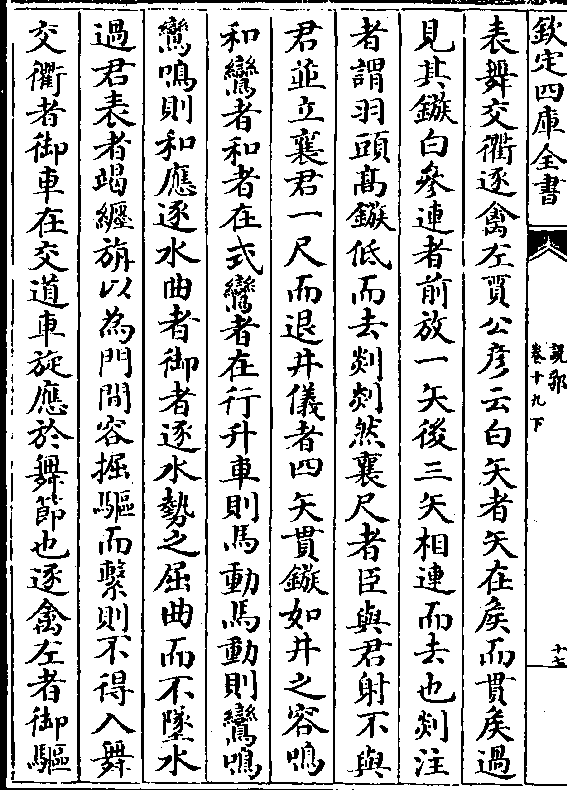 欽定四庫全書
說郛
卷十九下
十七
表舞交衢逐禽左賈公彦云白矢者矢在矦而貫矦過
見其鏃白參連者前放一矢後三矢相連而去也剡注
者謂羽頭髙鏃低而去剡剡然襄尺者臣與君射不與
君並立襄君一尺而退井儀者四矢貫鏃如井之容鳴
和鸞者和者在式鸞者在行升車則馬動馬動則鸞鳴
鸞鳴則和應逐水曲者御者逐水勢之屈曲而不墜水
過君表者竭纏旃以為門間容掘驅而繫則不得入舞
交衢者御車在交道車旋應於舞節也逐禽左者御驅